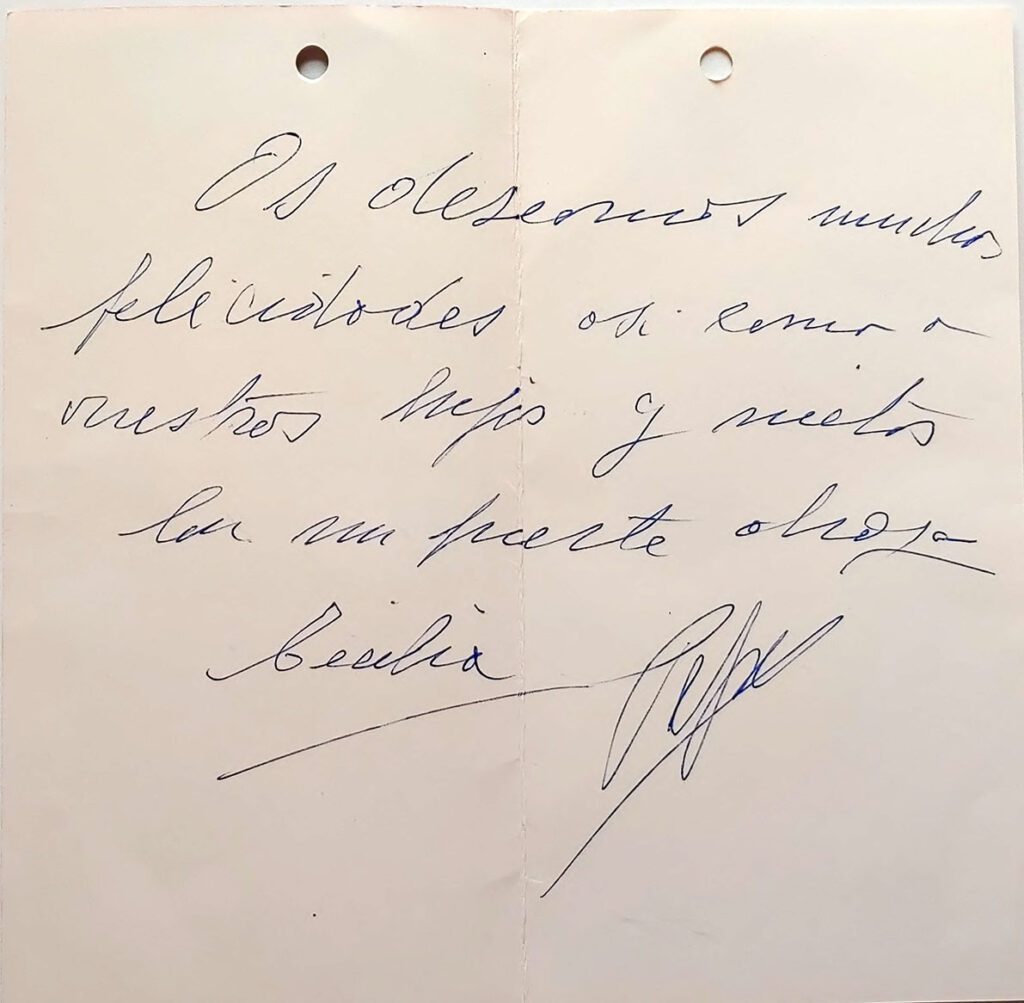 Os deseamos muchas
felicidades asi como a
vuestros hijos y nietos
Con un fuerte abrazo
Cecilia Pepe